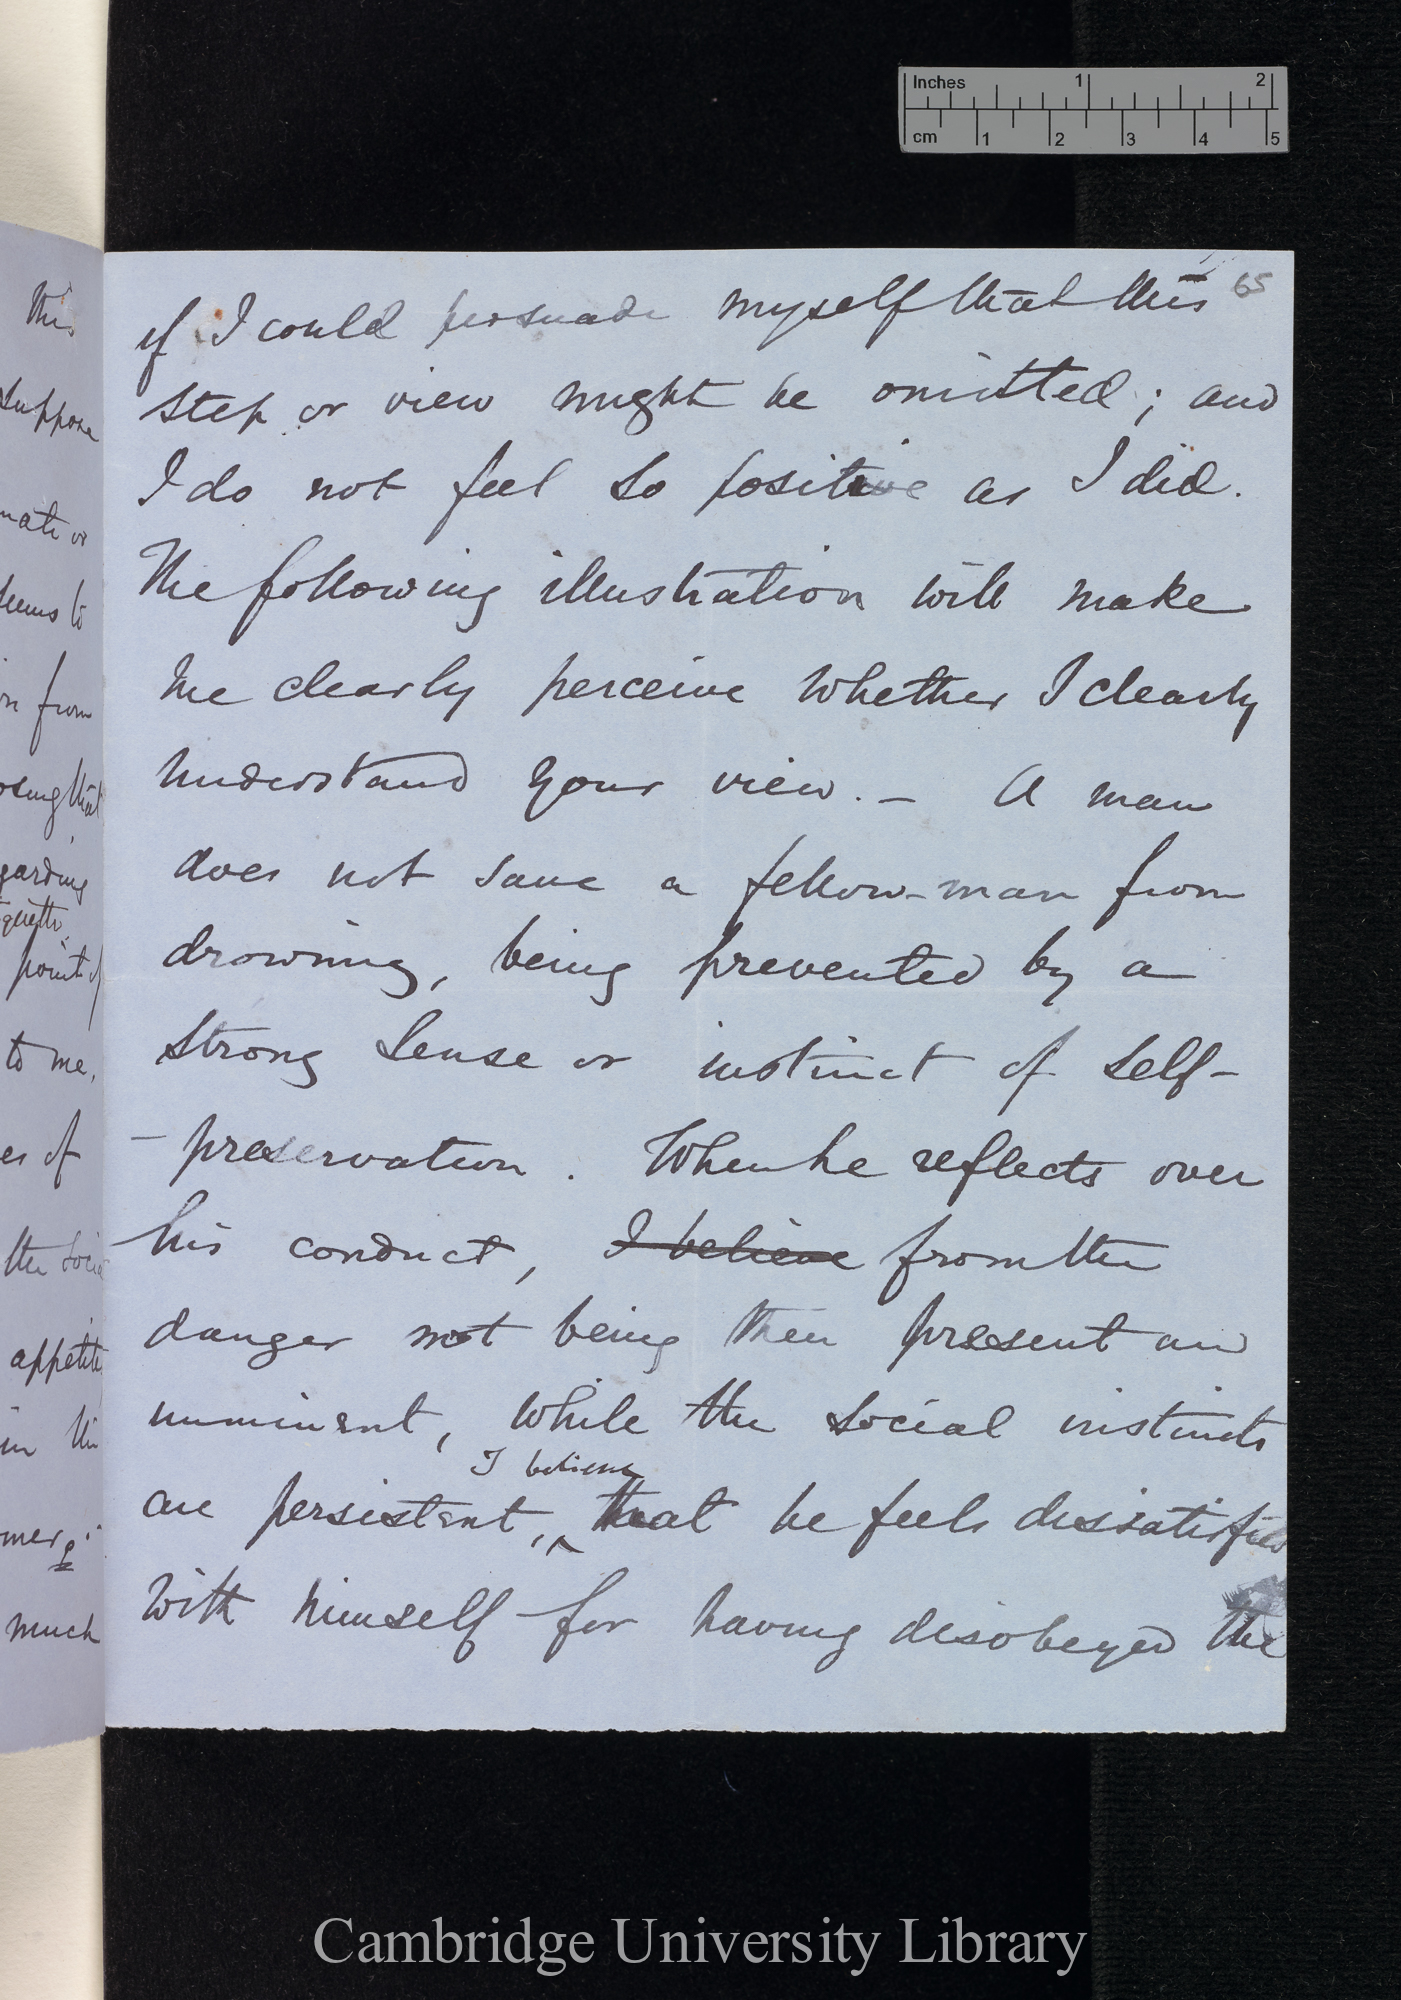 Inches 1 2
cm 1 2 3 4 5
65
if I could persuade myself that this
step or view might be omitted; and
I do not feel so positive as I did.
The following illustration will make
me clearly perceive whether I clearly
understand your view. — A man
does not save a fellow-man from
drowning, being prevented by a
strong sense or instinct of self-
-preservation. When he reflects over
his conduct, I believe from the
danger not being then present and
imminent, while the social instincts
I believe
are persistent, that he feels dissatisfied
with himself for having disobeyed the
this
suppose
mate or
seems to
from
osing that
garding
point of
to me.
es of
the social
appetite
in the
much
Cambridge University Library